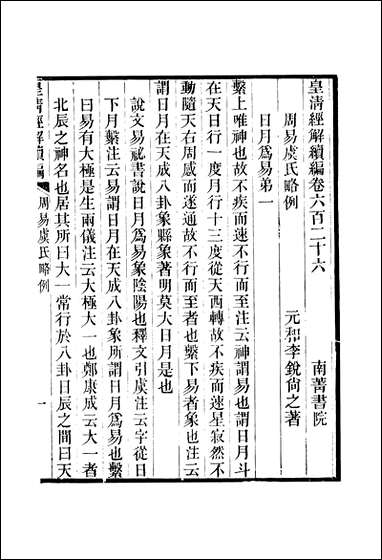 皇清經解續編卷六百二十六
南菁書院
周易虞氏略例
元和李銳尙之著
日月爲易弟一
繫上唯神也故不疾而速不行而至注云神謂易也謂日月斗
在天日行一度月行十三度從天西轉故不疾而速星寂然不
動隨天右周感而遂通故不行而至者也繫下易者象也注云
謂日月在天成八卦象縣象著明莫大日月是也
說文易祕書說日月爲易象陰陽也釋文引虞注云字從日
下月繫注云易謂日月在天成八卦象所謂日月爲易也繫
曰易有大極是生兩儀注云大極大一也鄭康成云大一者
北辰之神名也居其所曰大一常行於八卦日辰之間曰天
皇清經解續編
周易虞氏略例
一